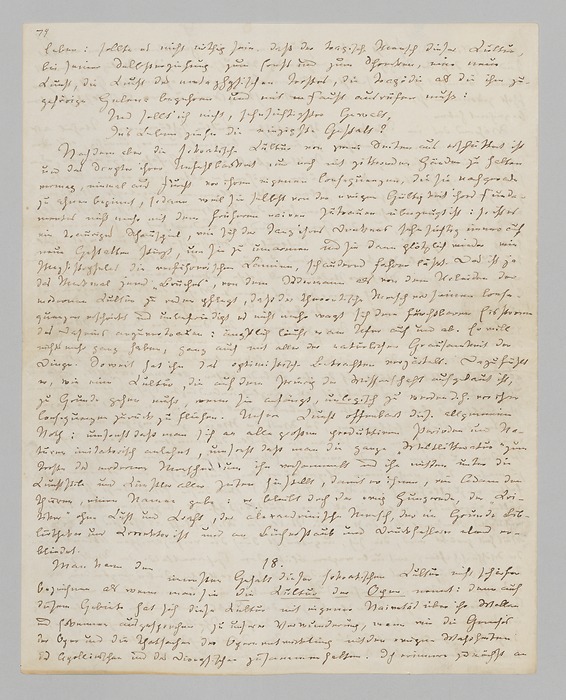 79
leben: sollte es nicht nöthig sein, daß der tragische Mensch dieser Cultur,
bei seiner Selbsterziehung zum Ernst und zum Schrecken, eine neue
Kunst, die Kunst des metaphysischen Trostes, die Tragödie als die ihm zu-
gehörige Helena begehren und mit Faust ausrufen muß:
Und sollt ich nicht, sehnsüchtigster Gewalt,
Ins Leben ziehn die einzigste Gestalt?
Nachdem aber die sokratische Cultur von zwei Seiten aus erschüttert ist
und das Scepter ihrer Unfehlbarkeit nur noch mit zitternden Händen zu halten
vermag, einmal aus Furcht vor ihren eigenen Consequenzen, die sie nachgerade
zu ahnen beginnt, sodann weil sie selbst von der ewigen Gültigkeit ihres Funda-
mentes nicht mehr mit dem früheren naiven Zutrauen überzeugt ist: so ist es
ein trauriges Schauspiel, wie sich der Tanz ihres Denkens sehnsüchtig immer auf
neue Gestalten stürzt, um sie zu umarmen und sie dann plötzlich wieder wie
Mephistopheles die verführerischen Lamien, schaudernd fahren läßt. Das ist ja
das Merkmal jenes „Bruches", von dem Jedermann als von dem Urleiden der
modernen Cultur zu reden pflegt, daß der theoretische Mensch vor seinen Conse-
quenzen erschrickt und unbefriedigt es nicht mehr wagt sich dem furchtbaren Eisstrome
des Daseins anzuvertrauen: ängstlich läuft er am Ufer auf und ab. Er will
nichts mehr ganz haben, ganz auch mit aller der natürlichen Grausamkeit der
Dinge. Soweit hat ihn das optimistische Betrachten verzärtelt. Dazu fühlt
er, wie eine Cultur, die auf dem Princip der Wissenschaft aufgebaut ist,
zu Grunde gehen muß, wenn sie anfängt, unlogisch zu werden d.h. vor ihren
Consequenzen zurück zu fliehen. Unsere Kunst offenbart diese allgemeine
Noth: umsonst daß man sich an alle großen produktiven Perioden und Na-
turen imitatorisch anlehnt, umsonst daß man die ganze „Weltlitteratur" zum
Troste des modernen Menschen um ihn versammelt und ihn mitten unter die
Kunststile und Künstler aller Zeiten hinstellt, damit er ihnen, wie Adam den
Thieren, einen Namen gebe: er bleibt doch der ewig Hungernde, der „Kri-
tiker" ohne Lust und Kraft, der alexandrinische Mensch, der im Grunde Bib-
liothekar und Corrector ist und an Bücherstaub und Druckfehlern elend er-
blindet.
18.
Man kann den innersten Gehalt dieser sokratischen Cultur nicht schärfer
bezeichnen als wenn man sie die Cultur der Oper nennt: denn auf
diesem Gebiete hat sich diese Cultur mit eigener Naivetät über ihr Wollen
und Erkennen ausgesprochen, zu unserer Verwunderung, wenn wir die Genesis
der Oper und die Thatsachen der Opernentwicklung mit den ewigen Wahrheiten
des Apollinischen und des Dionysischen zusammenhalten. Ich erinnere zunächst an